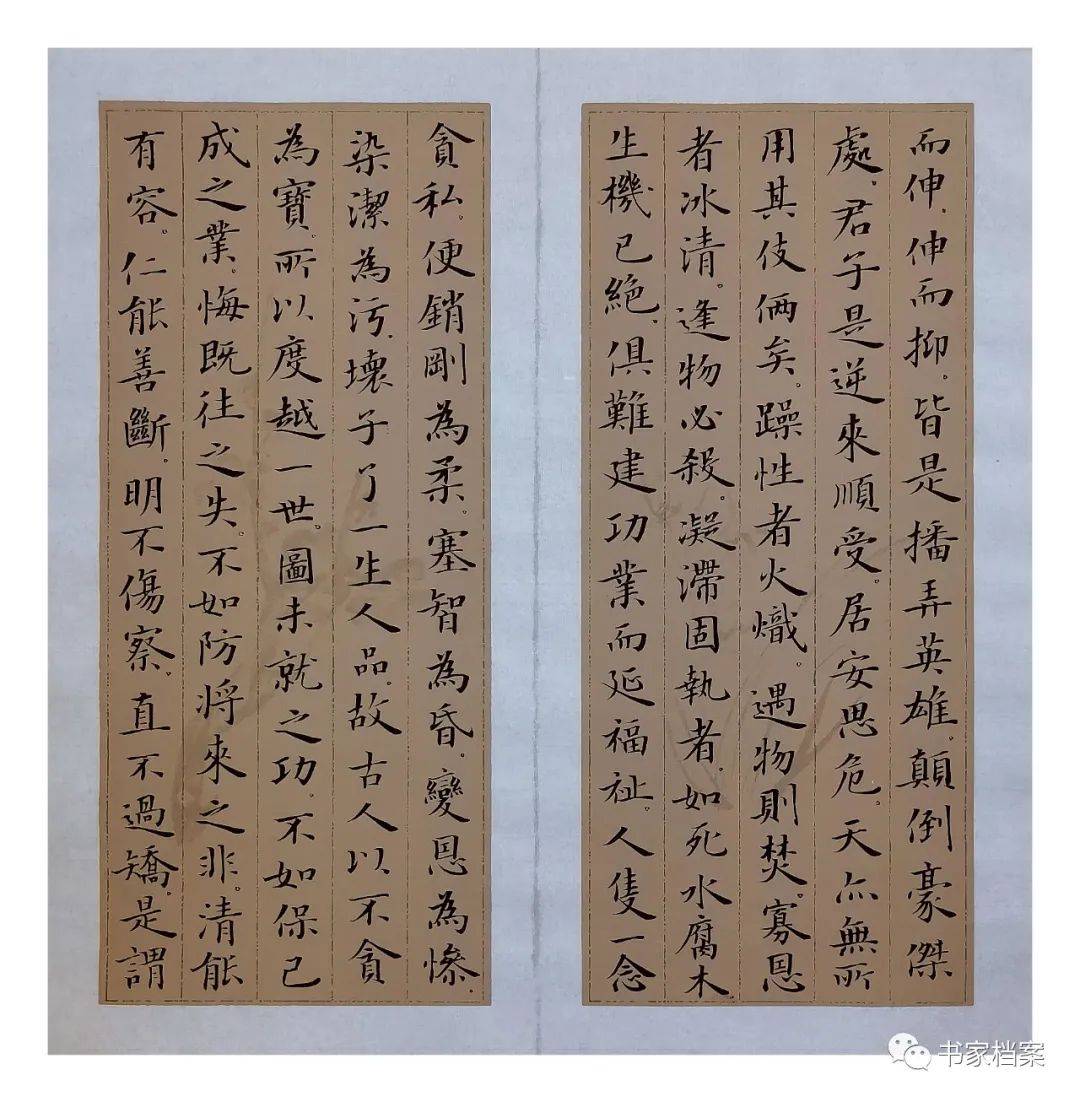 而伸、伸而抑。皆是播弄英雄。顛倒豪傑
處。君子是逆來順受。居安思危。天亦無所
用其伎倆矣。躁性者火熾。遇物則焚。寡恩
者冰清。逢物必殺。凝滯固執者。如死水腐木
生機已絕、俱難建功業而延福祉。人隻一念
貪私。便銷剛為柔。塞智為昏。變恩為慘。
染潔為污、壞了一生人品。故古人以不貪
為寶。所以度越一世。圖未就之功。不如保已
成之業。悔既往之失。不如防將來之非。清能
有容。仁能善斷。明不傷察。直不過矯。是謂
书家档案